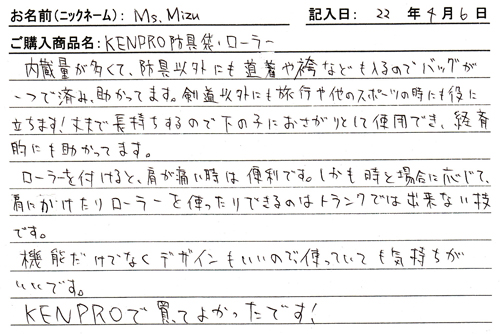 お名前(ニックネーム): Ms. Mizu 記入日: 22 年4月6日
ご購入商品名: KENPRO防具袋・ローラー
内蔵量が多くて、防具以外にも道着や袴なども入るのでバッグが
一つで済み、助かってます。剣道以外にも旅行や他のスポーツの時にも役に
立ちます!丈夫で長持ちするので下の子におさがりとして使用でき、経済
的にも助かってます。
ローラーを付けると、肩が痛い時は便利です。しかも時と場合に応じて、
肩にかけたりローラーを使ったりできるのはトランクでは出来ない技
です。
機能だけでなくデザインもいいので、使っていても気持ちが
いいです。
KENPROで買ってよかったです!